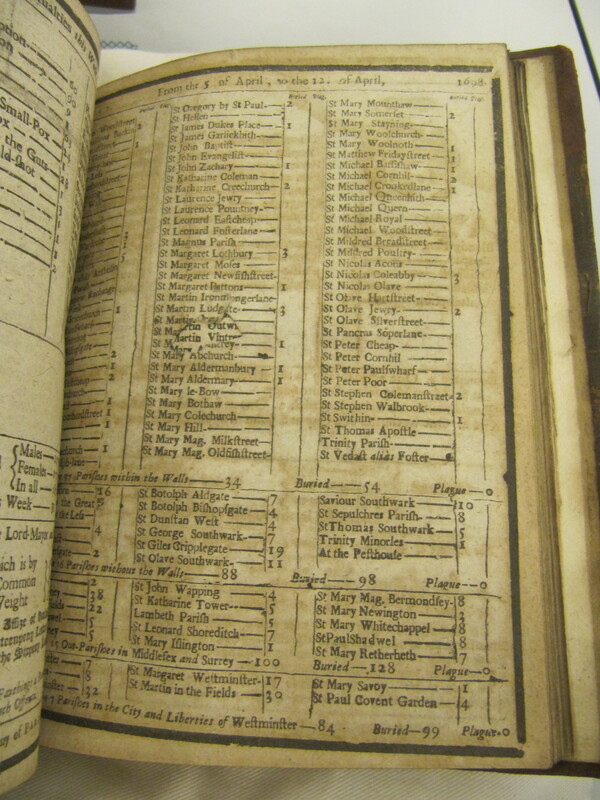 ualties this W
Small-Pox
the Guts
Males
Females
In all
s Week
Lord-Mayor
ich is by
Common
Weight
From the 5 of April, to the 12. of April, 1698
St Gregory by St Paul 2
St Hellen
St James Dukes Place 1
St James Garlickhith
St John Baptist
St John Evangelist
St John Zachary 1
St Katharine Coleman
St Katharine Creechurch 2
St Laurence Jewry
St Laurence Pountney
St Leonard Eastcheap
St Leonard Fosterlane
St Magnus Parish
St Margaret Lothbury 3
St Margaret Moses
St Margaret Newfishstreet
St Margaret Pattons 1
St Martin Ironmongerlane
St Martin Ludgate 3
St Martin Outw
St Martin Vintr
St Ma
St Mary Abchurch
St Mary Aldermanbury 1
St Mary Aldermary 1
St Mary le-Bow
St Mary Bothaw
St Mary Colechurch
St Mary Hill
St Mary Mag. Milkstreet
St Mary Mag. Oldfishstreet
St Mary Mounthaw
St Mary Somerset 2
St Mary Stayning
St Mary Woolchurch
St Mary Woolnoth 1
St Matthew Fridaystreet
St Michael Bassishaw 1
St Michael Cornhil 2
St Michael Crookedlane 1
St Michael Queenhith
St Michael Quern
St Michael Royal
St Michael Woodstreet
St Mildred Breadstreet
St Mildred Poultry
St Nicolas Acons
St Nicolas Coleabby 3
St Nicolas Olave
St Olave Hartstreet
St Olave Jewry 2
St Olave Silverstreet
St Pancras Soperlane
St Peter Cheap 1
St Peter Cornhil
St Peter Paulswharf
St Peter Poor
St Stephen Colemanstreet 2
St Stephen Walbrook
St Swithin 1
St Thomas Apostle
Trinity Parish
St Vedast alias Foster
97 Parishes within the Walls 34 Buried 54 Plague 0
St Botolph Aldgate 7
St Botolph Bishopsgate 4
St Dunstan West 4
St George Southwark 7
St Giles Cripplegate 19
St Olave Southwark 11
Saviour Southwark 10
St Sepulchres Parish 8
St Thomas Southwark 5
Trinity Minories 1
At the Pesthouse
16 Parishes without the Walls 88 Buried 98 Plague 0
St John Wapping 4
St Katharine Tower 5
Lambeth Parish 5
St Leonard Shoreditch 7
St Mary Islington 1
St Mary Mag. Bermondsey 8
St Mary Newington 3
St Mary Whitechappel 8
St Paul Shadwel 8
St Mary Retherheth 7
15 Out-Parishes in Middlesex and Surrey 100 Buried 128 Plague 0
St Margaret Westminster 17
St Martin in the Fields 30
St Mary Savoy 1
St Paul Covent Garden 4
7 Parishes in the City and Liberties of Westminster 84 Buried 99 Plague 0